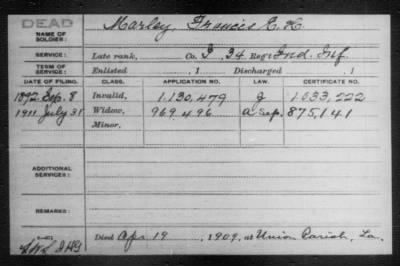 DEAD
NAME OF SOLDIER: Marley, Francis E. H.
SERVICE: Late rank, Co. I, 34 Reg't Ind. Inf.
TERM OF SERVICE: Enlisted , 1 Discharged , 1
DATE OF FILING. CLASS. APPLICATION NO. LAW. CERTIFICATE NO.
1892 Sep. 8 Invalid. 1.130,479 1.033,222
1911 July 31 Widow. 969.496 A Sep. 875,141
Minor.
ADDITIONAL SERVICES:
REMARKS:
Died Apr 19, 1909, at Union Parish, La.